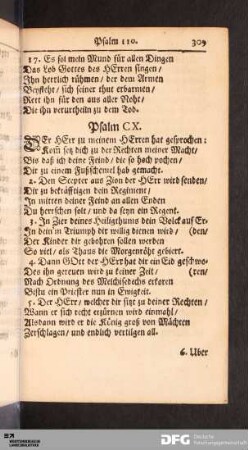 Psalm 110. 309
17. Es sol mein Mund für allen Dingen
Das Lob Gottes des HErren singen/
Ihn herrlich rühmen/ der dem Armen
Beysteht/ sich seiner thut erbarmen/
Rett ihn für den aus aller Noht/
Die ihn verurtheiln zu dem Tod.
Psalm CX.
DEr HErr zu meinem HErren hat gesprochen:
Kom setz dich zu der Rechten meiner Macht/
Bis daß ich deine Feind/ die so hoch pochen/
Dir zu einem Fußschemel hab gemacht.
2. Den Scepter aus Zion der HErr wird senden/
Dir zu bekräfftigen dein Regiment/
In mitten deiner Feind an allen Enden
Du herrschen solt/ und da seyn ein Regent.
3. In Zier deines Heiligthums dein Volck auf Er-
In dein'm Triumph dir willig dienen wird/ (den/
Der Kinder dir gebohren sollen werden
So viel/ als Thaus die Morgenröht gebiert.
4. Dann GOtt der HErr hat dir ein Eid geschwo-
Des ihn gereuen wird zu keiner Zeit/ (ren/
Nach Ordnung des Melchisedechs erkoren
Bistu ein Priester nun in Ewigkeit.
5. Der HErr/ welcher dir sitzt zu deiner Rechten/
Wann er sich recht erzürnen wird einmahl/
Alsdann wird er die König groß von Mächten
Zerschlagen/ und endlich vertilgen all.
6. Uber
DFG